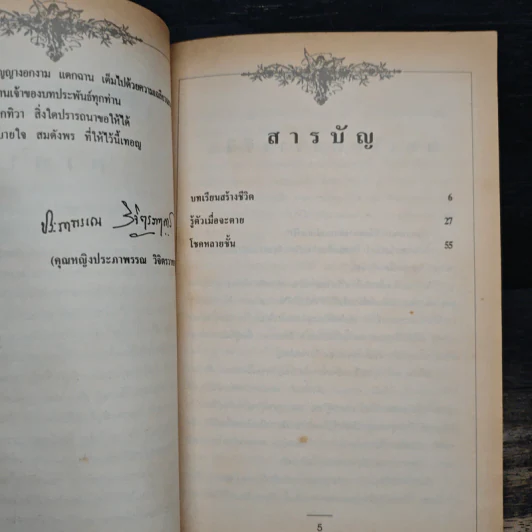 งอกงาม แตกฉาน เต็มไปด้วยความ
เจ้าของบทประพันธ์ทุกท่าน
ทิวา สิ่งใดปรารถนาขอให้ได้
สมดังพร ที่ให้ไว้นี้เทอญ
(คุณหญิงประภาพรรณ
สารบัญ
บทเรียนสร้างชีวิต 6
รู้ตัวเมื่อจะตาย 27
โชคหลายชั้น 55
5